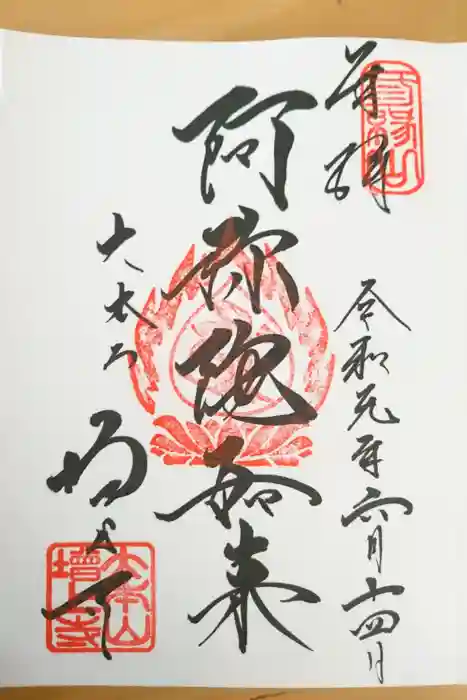 奉拝
令和元年六月十四日
阿弥陀如来
大本山
増上寺
大本山
增上寺